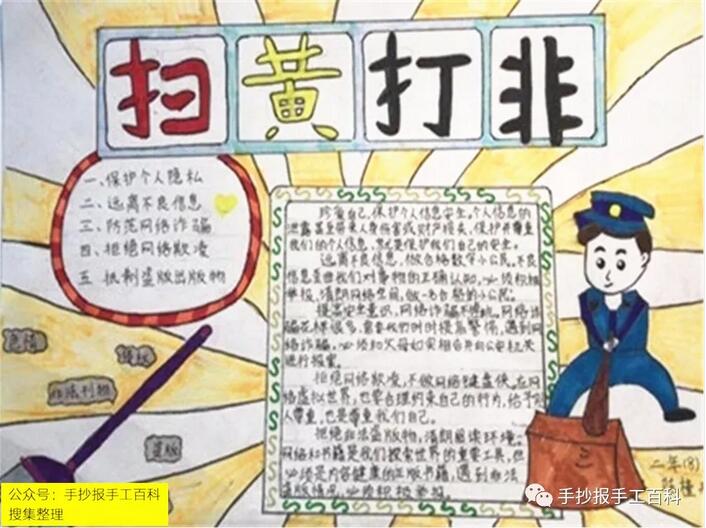 扫黄打非
一、保护个人隐私
二、远离不良信息
三、防范网络诈骗
四、拒绝网络欺凌
五、抵制盗版出版物
珍爱自己,保护个人信息安全。个人信息的
泄露甚至带来人身伤害或财产损失,保护并尊重
我们的个人信息,就是保护我们自己的安全。
远离不良信息,做合格数字小公民。不良
信息歪曲我们对事物的正确认知,必须积极
举报,清朗网络空间,做一名合格的小公民。
提高安全意识,网络诈骗不得逞。网络诈
骗花样很多,需要我们时时提高警惕,遇到网
络诈骗,必须和父母如实相告并向公安机关
进行报案。
拒绝网络欺凌,不做网络键盘侠。在网
络虚拟世界,也要合理约束自己的行为,给予别
人尊重,也是尊重我们自己。
拒绝非法盗版物,清朗阅读环境。
网络和书籍是我们探索世界的重要工具,但
必须是内容健康的正版书籍,遇到非法
盗版情况,必须积极举报。
色情
非法刊物
盗版
二年(8)
公众号:手抄报手工百科
搜集整理
手抄报手工百科